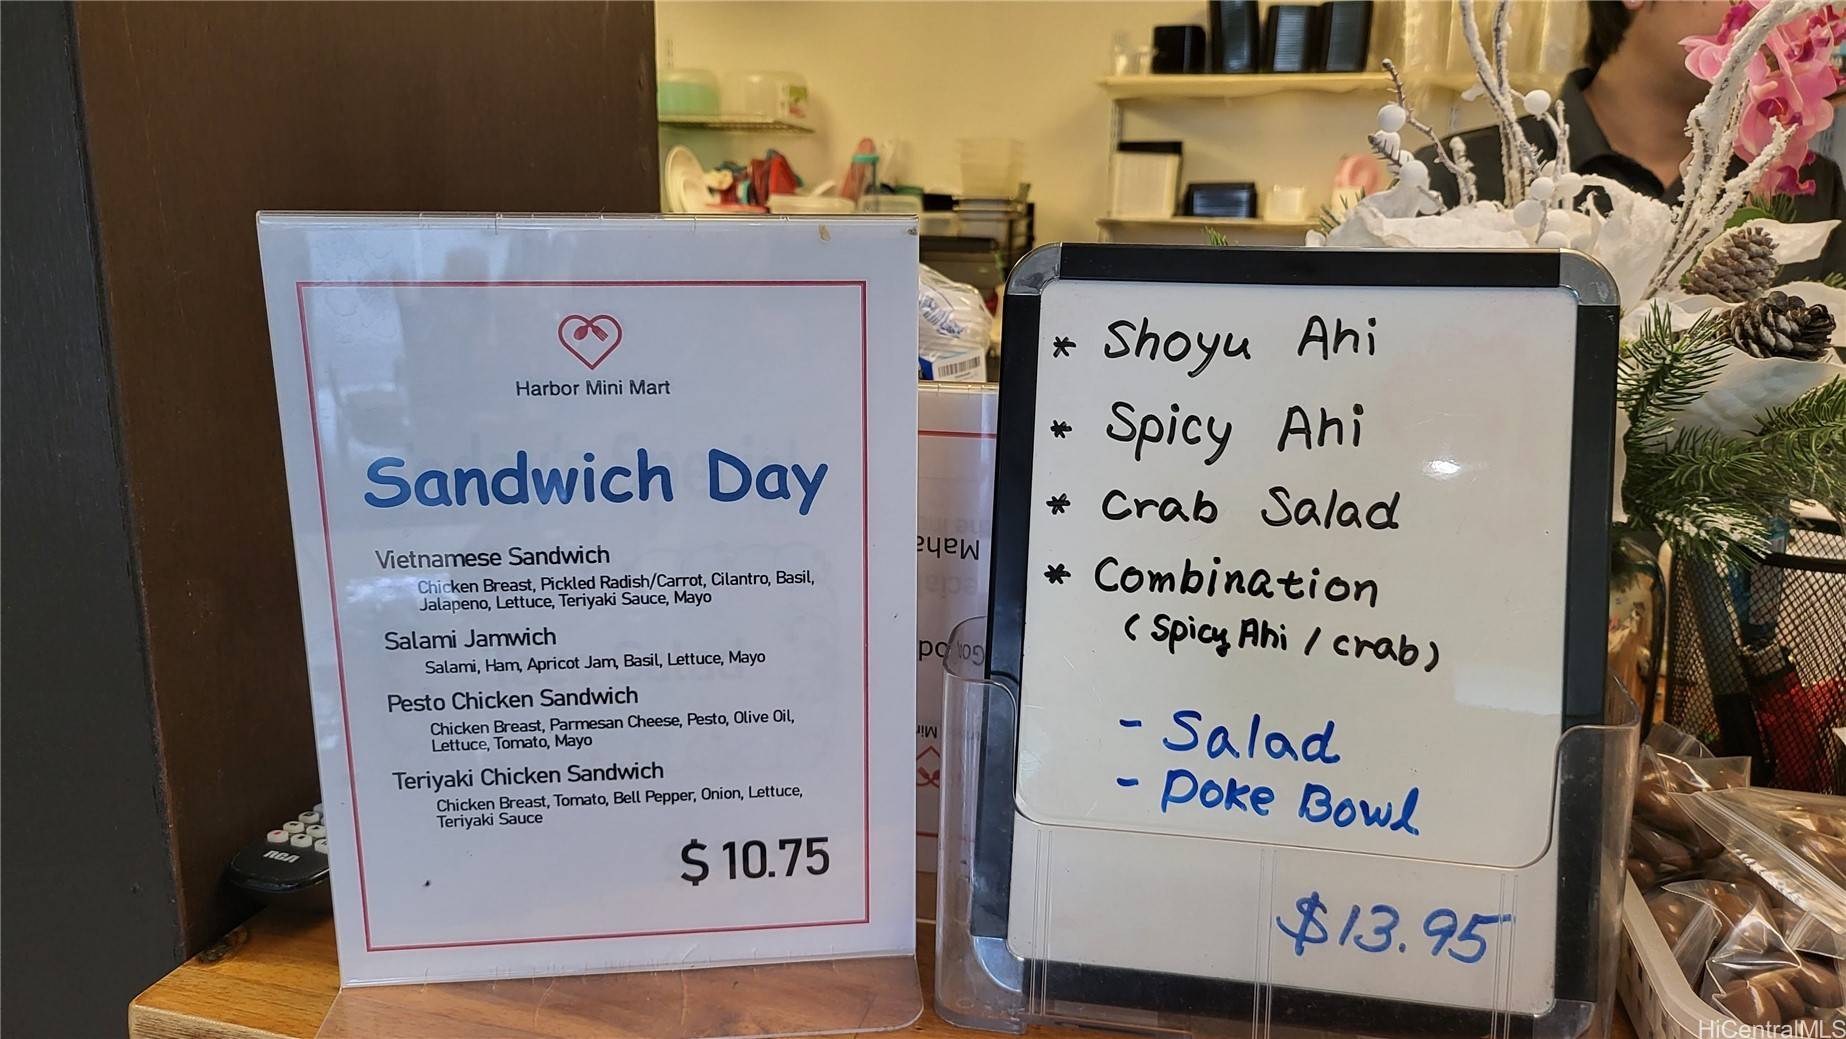 Harbor Mini Mart
Sandwich Day
Vietnamese Sandwich
Chicken Breast, Pickled Radish/Carrot, Cilantro, Basil,
Jalapeno, Lettuce, Teriyaki Sauce, Mayo
Salami Jamwich
Salami, Ham, Apricot Jam, Basil, Lettuce, Mayo
Pesto Chicken Sandwich
Chicken Breast, Parmesan Cheese, Pesto, Olive Oil,
Lettuce, Tomato, Mayo
Teriyaki Chicken Sandwich
Chicken Breast, Tomato, Bell Pepper, Onion, Lettuce,
Teriyaki Sauce
$ 10.75
RCA
* Shoyu Ahi
* Spicy Ahi
* Crab Salad
* Combination
(Spicy Ahi / crab)
- Salad
- Poke Bowl
$13.95
HiCentralMLS